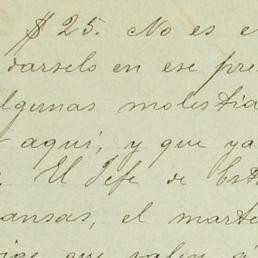 $25. No es e
darselo en ese pre
lgunas molestia
aquí, y que ya
El Jefe de Est
ansas, el marte
que valen